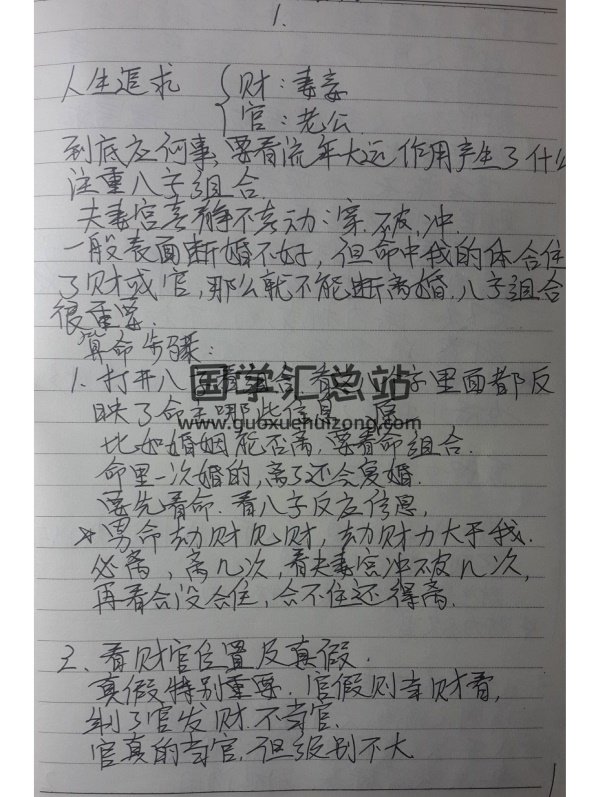 1.
人生追求 { 财：妻
官：老公
到底应何事，要看流年大运作用产生了什么
注重八字组合
夫妻宫喜静不喜动：穿.破.冲.
一般表面断婚不好，但命中我的体合住
了财或官，那么就不能断离婚.八字组合
很重要.
算命步骤：
国学汇总站
1.打开八字看组合 看 八字里面都反
映了命主哪些信息
www.guoxuehuizong.com
比如婚姻能否离，要看命组合.
命里一次婚的，离了还会复婚.
要先看命.看八字反应信息，
*男命劫财见财，劫财力大于我.
必离，离几次，看夫妻宫冲破几次，
再看合没合住，合不住还得离.
2.看财官位置及真假.
真假特别重要.官假则当财看，
制了官发财.不当官.
官真的当官.但级别不大